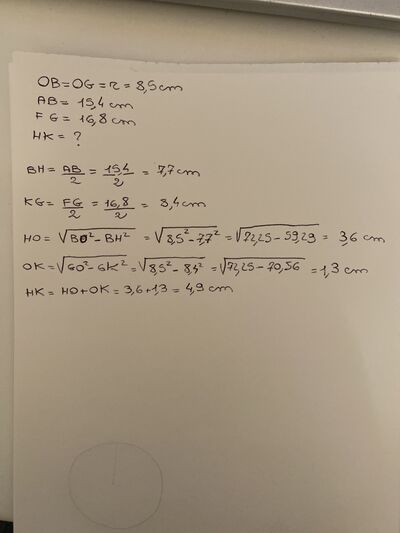 OB=OG=r=8,5cm
AB= 15,4 cm
FG= 16,8 cm
HK= ?
BH= AB/2 = 15,4/2 = 7,7cm
KG= FG/2 = 16,8/2 = 8,4cm
HO= √BO²-BH² = √8,5²-7,7² = √72,25-59,29 = 3,6 cm
OK= √GO²-GK² = √8,5²-8,4² = √72,25-70,56 = 1,3 cm
HK = HO+OK = 3,6+1,3 = 4,9 cm